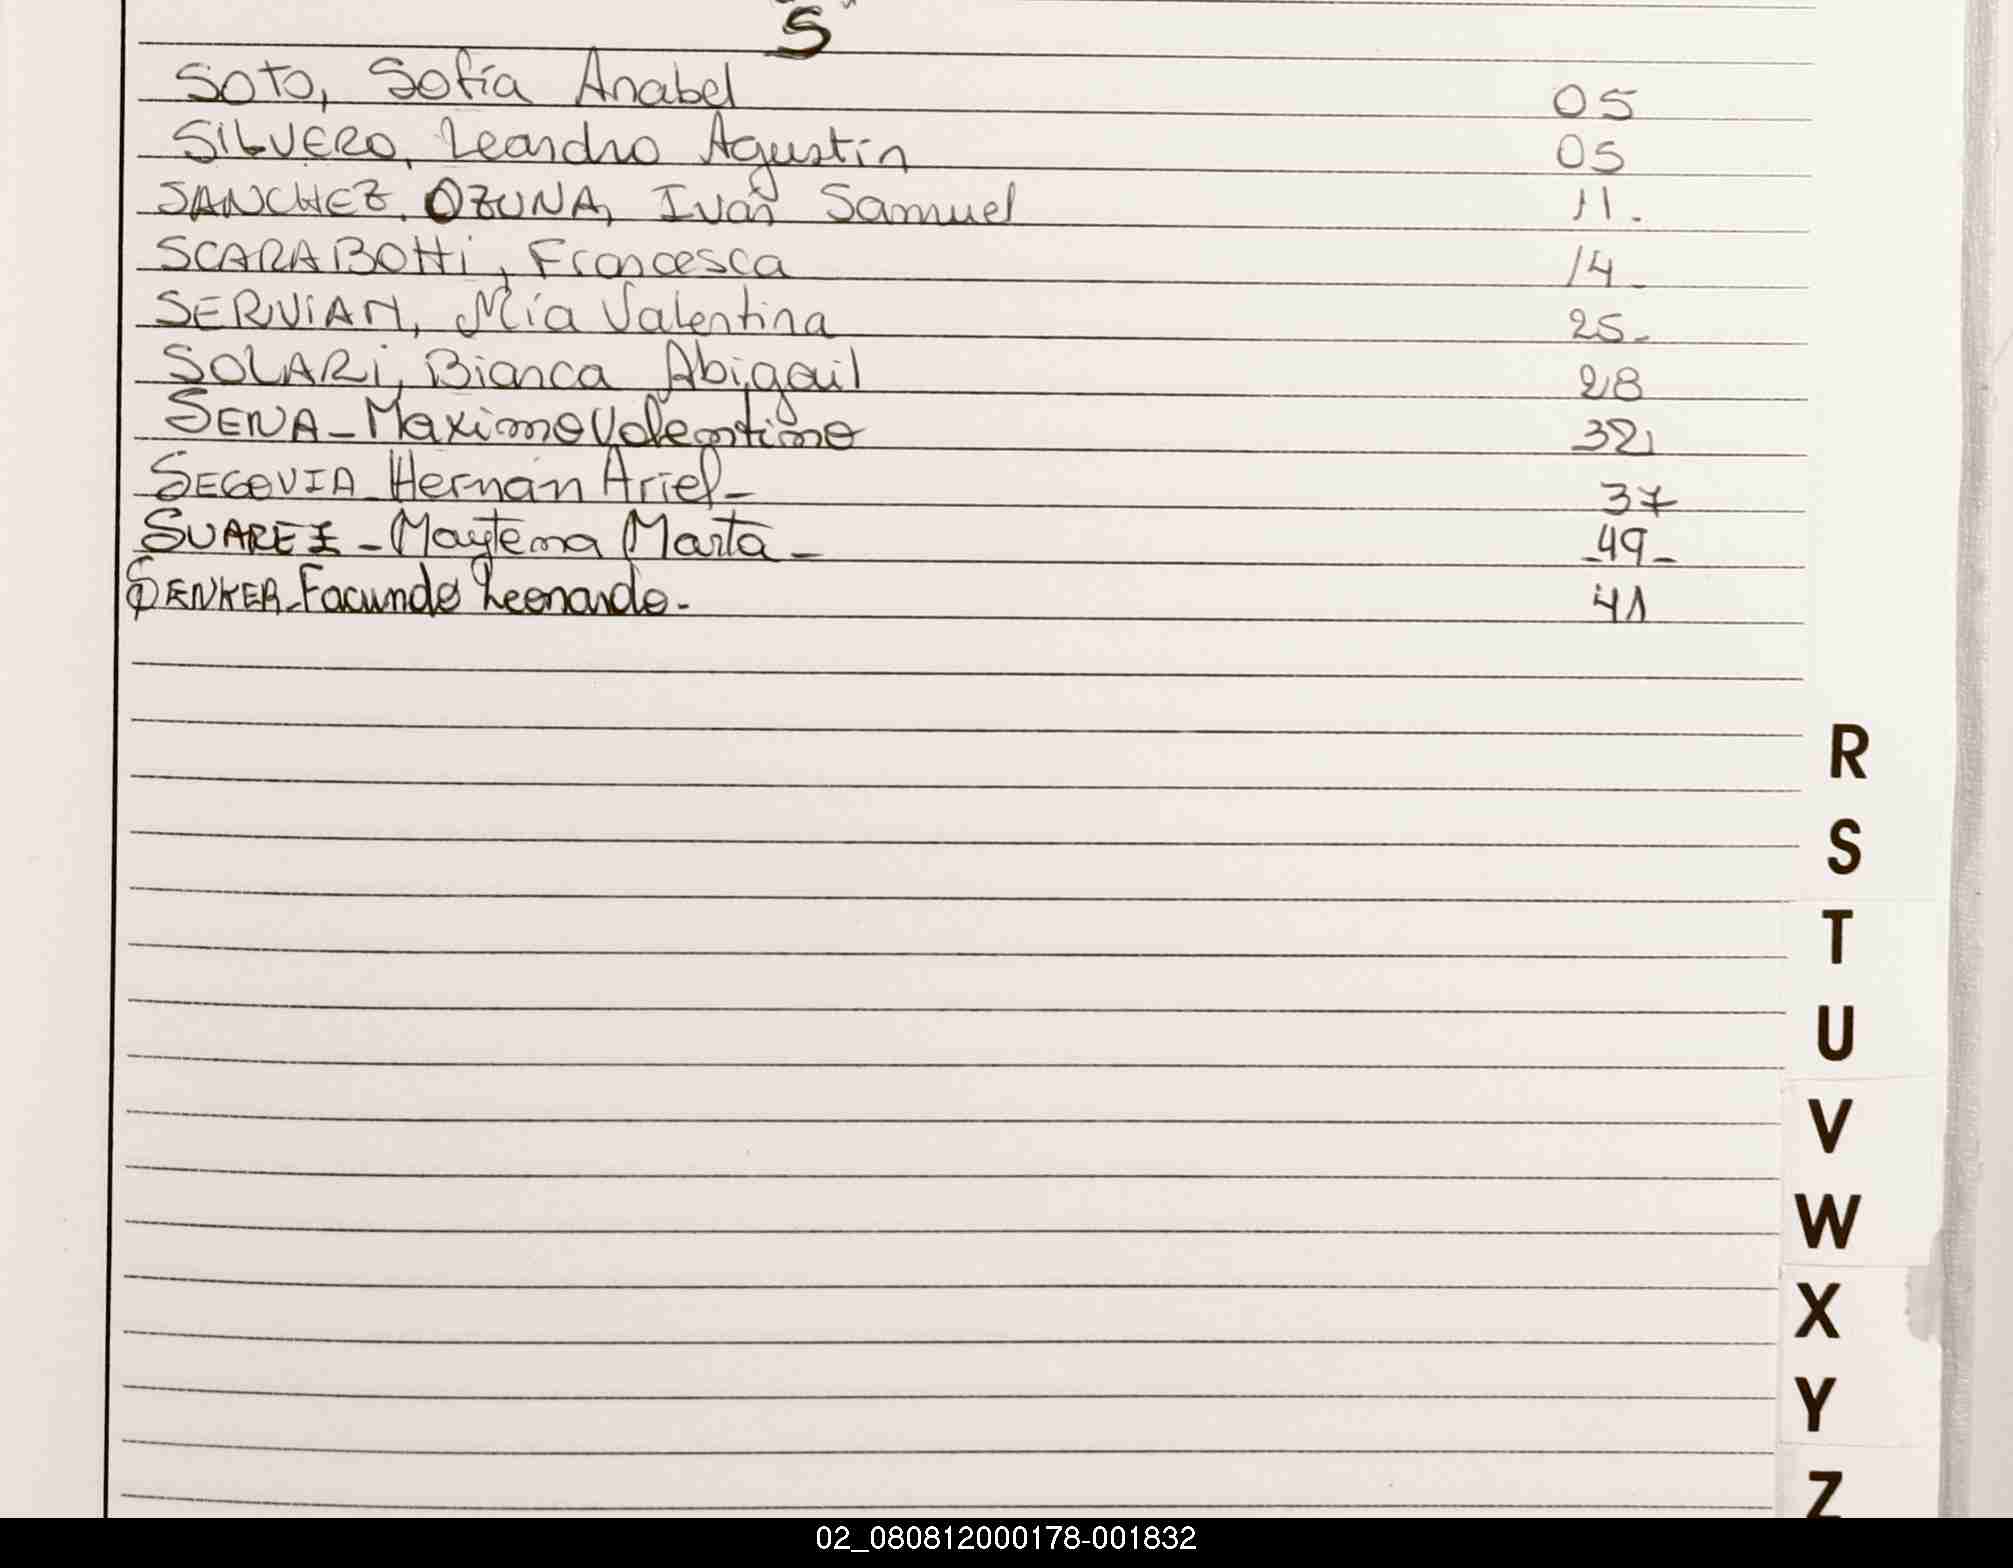 "S"
SOTO, Sofía Anabel 05
SILVERO, Leandro Agustín 05
SANCHEZ. OZUNA, Iván Samuel 11.
SCARABOTTI, Francesca 14-
SERVIAN, Mía Valentina 25-
SOLARI, Bianca Abigail 28
SENA - Maximo Valentino 32
SEGOVIA - Hernán Ariel - 37
SUAREZ - Maytena Marta - -49-
SENKER - Facundo Leonardo - 41
R
S
T
U
V
W
X
Y
Z
02_080812000178-001832